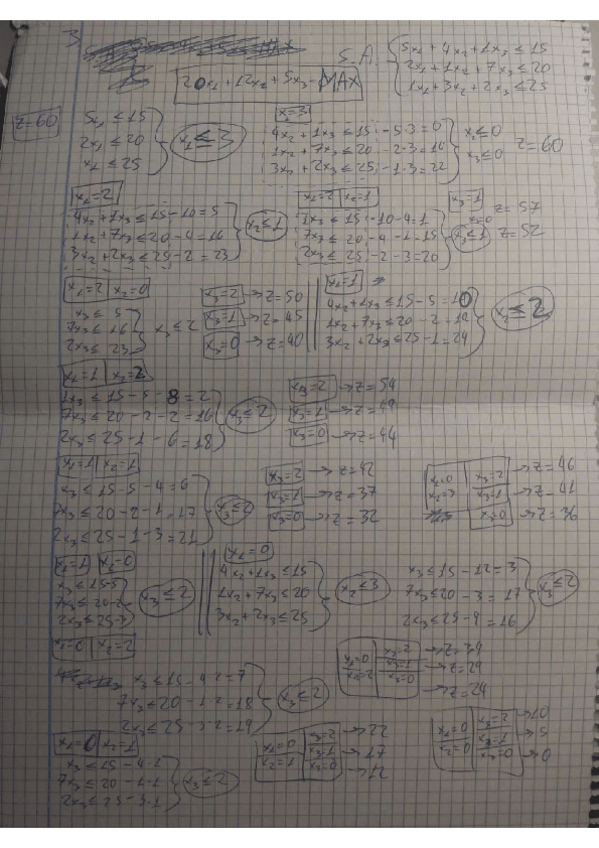 3
20x₁+12x₂+5x₃=MAX
S.A. { 5x₁+4x₂+1x₃≤15
2x₁+1x₂+7x₃≤20
1x₁+3x₂+2x₃≤25
z=60
5x₁≤15
2x₁≤20
x₁≤25
x₁≤3
x₁=3
4x₂+1x₃≤15-5·3=0
1x₂+7x₃≤20-2·3=14
3x₂+2x₃≤25-1·3=22
x₂≤0
x₃≤0
z=60
x₁=2
4x₂+1x₃≤15-10=5
1x₂+7x₃≤20-4=16
3x₂+2x₃≤25-2=23
x₂≤1
x₁=2 x₂=1
1x₃≤15-10-4=1
7x₃≤20-4-1=15
2x₃≤25-2-3=20
x₃≤1
x₃=1 z=57
x₃=0 z=52
x₁=2 x₂=0
x₃≤5
7x₃≤16
2x₃≤23
x₃≤2
x₃=2 →z=50
x₃=1 →z=45
x₃=0 →z=40
x₁=1
4x₂+1x₃≤15-5=10
1x₂+7x₃≤20-2=18
3x₂+2x₃≤25-1=24
x₂≤2
x₁=1 x₂=2
1x₃≤15-5-8=2
7x₃≤20-2-2=16
2x₃≤25-1-6=18
x₃≤2
x₃=2 →z=54
x₃=1 →z=49
x₃=0 →z=44
x₁=1 x₂=1
x₃≤15-5-4=6
7x₃≤20-2-1=17
2x₃≤25-1-3=21
x₃≤2
x₃=2 →z=42
x₃=1 →z=37
x₃=0 →z=32
x₁=0
x₂=3
x₃=2 →z=46
x₃=1 →z=41
x₃=0 →z=36
x₁=1 x₂=0
x₃≤15-5
7x₃≤20-2
2x₃≤25-1
x₃≤2
x₁=0
4x₂+1x₃≤15
1x₂+7x₃≤20
3x₂+2x₃≤25
x₂≤3
x₃≤15-12=3
7x₃≤20-3=17
2x₃≤25-9=16
x₃≤2
x₁=0 x₂=2
x₃≤15-4·2=7
7x₃≤20-1·2=18
2x₃≤25-3·2=19
x₃≤2
x₁=0
x₂=2
x₃=2 →z=34
x₃=1 →z=29
x₃=0 →z=24
x₁=0 x₂=1
x₃≤15-4·1
7x₃≤20-1·1
2x₃≤25-3·1
x₃≤2
x₁=0
x₂=1
x₃=2 →22
x₃=1 →17
x₃=0 →12
x₁=0
x₂=0
x₃=2 →10
x₃=1 →5
x₃=0 →0